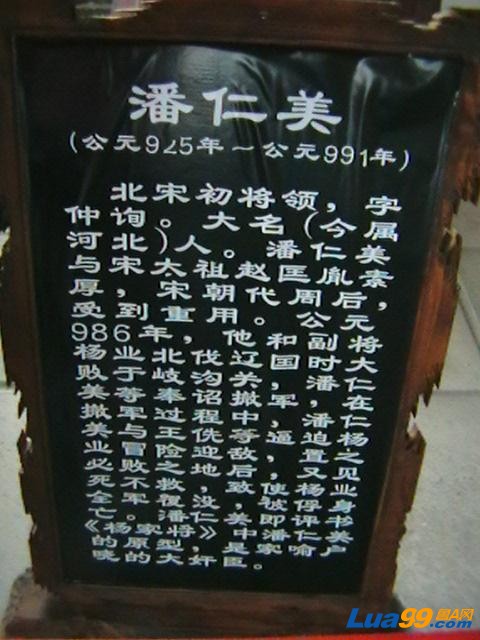 潘仁美
(公元925年～公元991年)
北宋初将领，字
仲询。大名(今属
河北)人。潘仁美
与宋太祖赵匡胤素
厚，宋朝代周后，
受到重用。公元
986年，他和副将
杨业北伐辽国时大
败于岐沟关，潘仁
美等奉诏撤军，在
撤军过程中，潘仁
美与王侁等逼迫杨
业冒险迎敌，置之
必败之地，后又见
死不救，致使杨业
全军覆没，被俘身
亡。潘仁美即评书
《杨家将》中潘仁美
的原型，是家喻户
晓的大奸臣。
Lua99.com